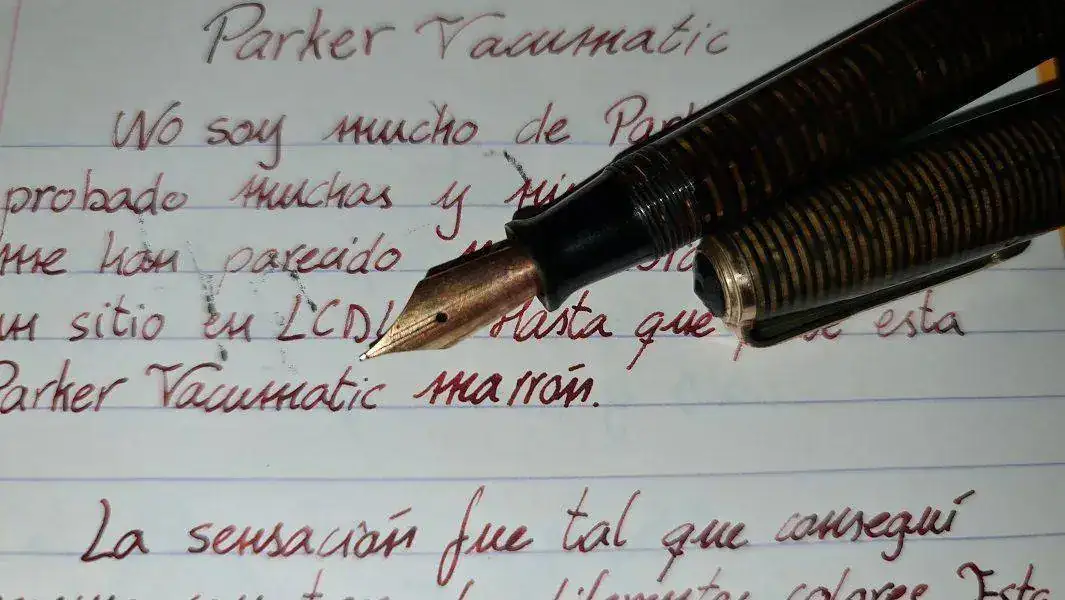 Parker Vacumatic
No soy mucho de
probado muchas y
me han parecido
un sitio en Hasta que esta
Parker Vacumatic marrón.
La sensación fue tal que conseguí
diferentes colores. Esta